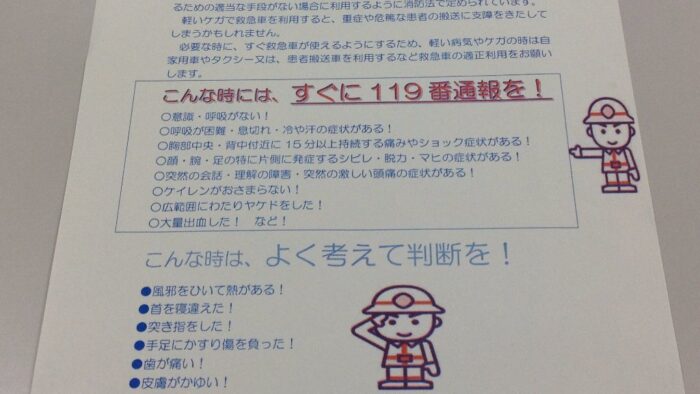 るための適当な手段がない場合に利用するように消防法で定められています。
軽いケガで救急車を利用すると、重症や危篤な患者の搬送に支障をきたして
しまうかもしれません。
必要な時に、すぐ救急車が使えるようにするため、軽い病気やケガの時は自
家用車やタクシー又は、患者搬送車を利用するなど救急車の適正利用をお願い
します。
こんな時には、すぐに119番通報を！
○意識・呼吸がない！
○呼吸が困難・息切れ・冷や汗の症状がある！
○胸部中央・背中付近に15分以上持続する痛みやショック症状がある！
○顔・腕・足の特に片側に発症するシビレ・脱力・マヒの症状がある！
○突然の会話・理解の障害・突然の激しい頭痛の症状がある！
○ケイレンがおさまらない！
○広範囲にわたりヤケドをした！
○大量出血した！ など！
こんな時は、よく考えて判断を！
●風邪をひいて熱がある！
●首を寝違えた！
●突き指をした！
●手足にかすり傷を負った！
●歯が痛い！
●皮膚がかゆい！